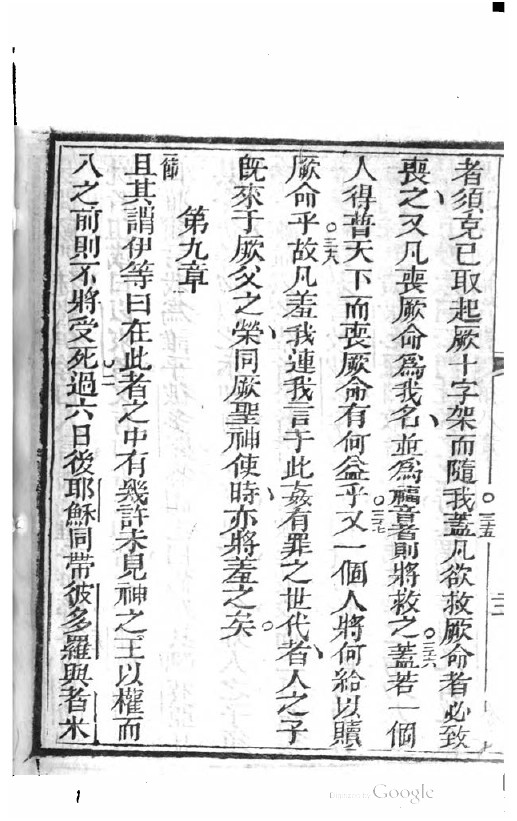 者須克己取起厥十字架而隨我○三五蓋凡欲救厥命者必致
喪之、又凡喪厥命爲我名、並爲福音者則將救之○三六蓋若一個
人得普天下而喪厥命有何益乎○三七又一個人將何給以贖
厥命乎○三八故凡羞我連我言于此姦有罪之世代者、人之子
旣來于厥父之榮、同厥聖神使時、亦將羞之矣○
第九章
節一且其謂伊等曰在此者之中有幾許未見神之王以權而
八之前則不將受死二過六日後耶穌同帶彼多羅與者米
Digitized by Google
1